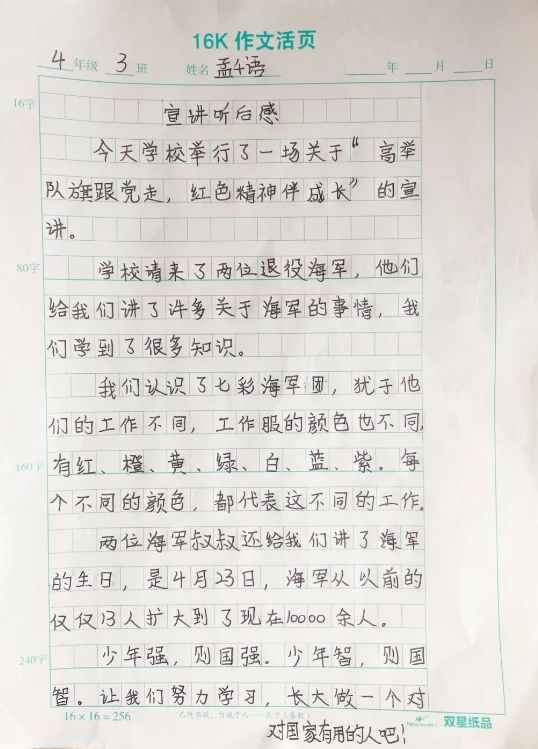 16K 作文活页
4 年级 3 班 姓名 孟千语 年 月 日
16字
宣讲听后感
今天学校举行了一场关于“高举
队旗跟党走，红色精神伴成长”的宣
讲。
80字
学校请来了两位退役海军，他们
给我们讲了许多关于海军的事情，我
们学到了很多知识。
我们认识了七彩海军团，犹于他
们的工作不同，工作服的颜色也不同，
160字
有红、橙、黄、绿、白、蓝、紫。每
个不同的颜色，都代表这不同的工作。
两位海军叔叔还给我们讲了海军
的生日，是4月23日，海军从以前的
仅仅13人扩大到了现在10000余人。
240字
少年强，则国强。少年智，则国
智。让我们努力学习，长大做一个对
16×16=256 己所不欲，勿施于人——孔子（春秋） 双星纸品
对国家有用的人吧！